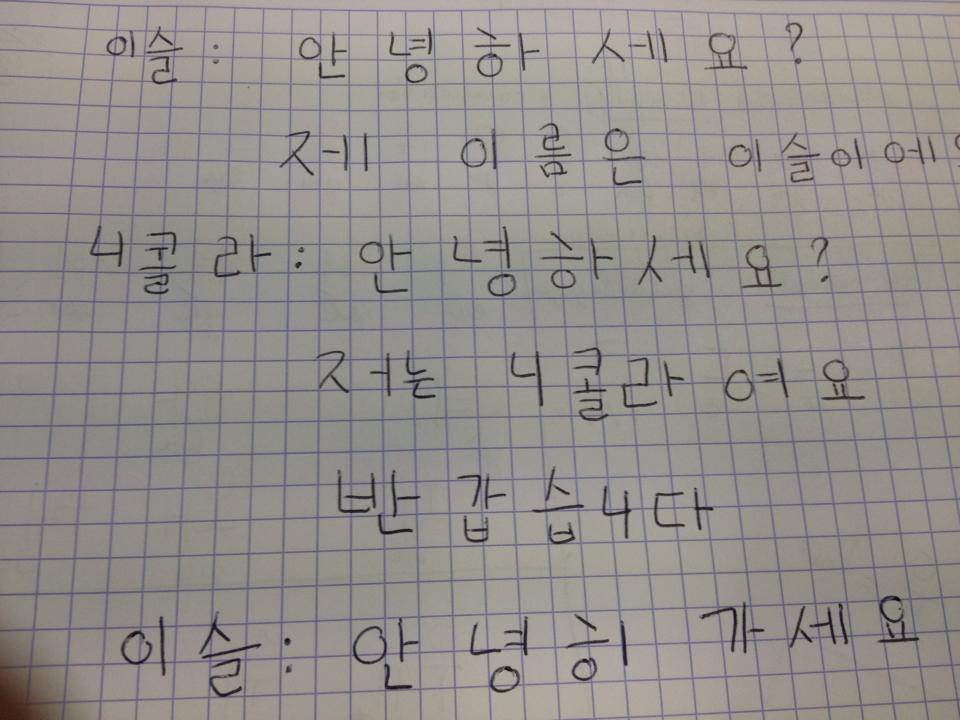 이슬: 안녕하세요?
제 이름은 이슬이에
니콜라: 안녕하세요?
저는 니콜라여요
반갑습니다
이슬: 안녕히 가세요